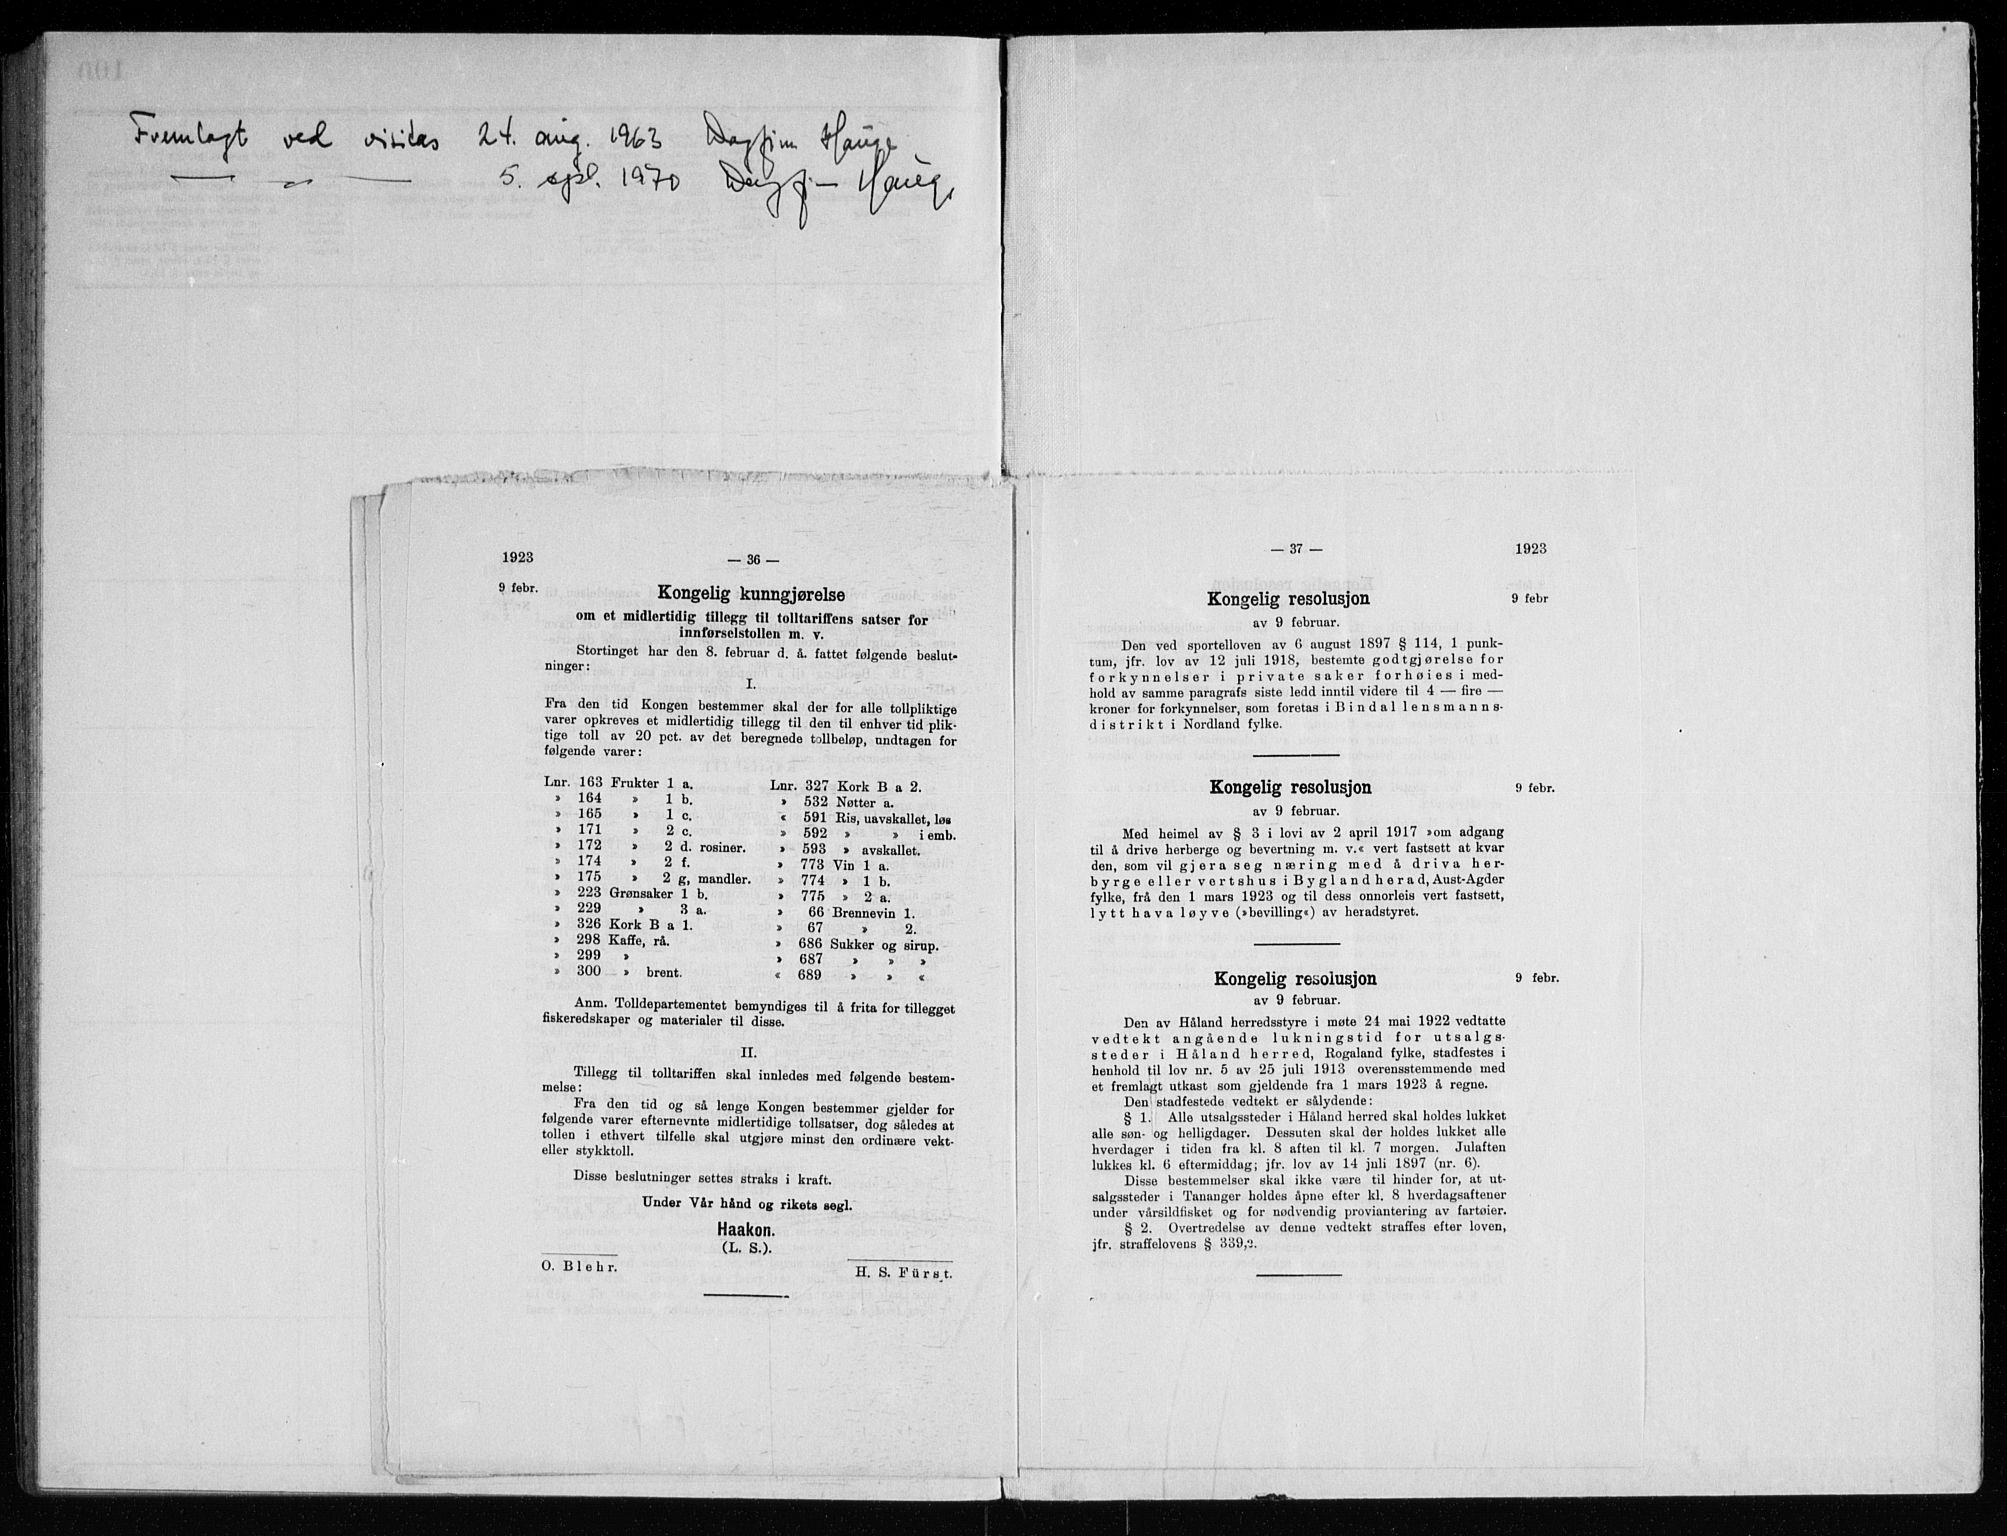 Fremlagt ved visitas 24. aug. 1963 Dagfinn Hauge
— „ — 5. sept. 1970 Dagfinn Hauge
1923
— 36 —
9 febr.
Kongelig kunngjørelse
om et midlertidig tillegg til tolltariffens satser for
innførselstollen m. v.
Stortinget har den 8. februar d. å. fattet følgende beslut-
ninger:
I.
Fra den tid Kongen bestemmer skal der for alle tollpliktige
varer opkreves et midlertidig tillegg til den til enhver tid plik-
tige toll av 20 pct. av det beregnede tollbeløp, undtagen for
følgende varer:
Lnr. 163 Frukter 1 a.
» 164 » 1 b.
» 165 » 1 c.
» 171 » 2 c.
» 172 » 2 d. rosiner.
» 174 » 2 f.
» 175 » 2 g, mandler.
» 223 Grønsaker 1 b.
» 229 » 3 a.
» 326 Kork B a 1.
» 298 Kaffe, rå.
» 299 »
» 300 » brent.
Lnr. 327 Kork B a 2.
» 532 Nøtter a.
« 591 Ris, uavskallet, løs
» 592 » » i emb.
» 593 » avskallet.
» 773 Vin 1 a.
» 774 » 1 b.
» 775 » 2 a.
» 66 Brennevin 1.
» 67 » 2.
» 686 Sukker og sirup.
» 687 » » »
« 689 » » «
Anm. Tolldepartementet bemyndiges til å frita for tillegget
fiskeredskaper og materialer til disse.
II.
Tillegg til tolltariffen skal innledes med følgende bestem-
melse:
Fra den tid og så lenge Kongen bestemmer gjelder for
følgende varer efternevnte midlertidige tollsatser, dog således at
tollen i ethvert tilfelle skal utgjøre minst den ordinære vekt-
eller stykktoll.
Disse beslutninger settes straks i kraft.
Under Vår hånd og rikets segl.
Haakon.
(L. S.).
O. Blehr.
H. S. Fürst.
— 37 —
1923
Kongelig resolusjon
9 febr
av 9 februar.
Den ved sportelloven av 6 august 1897 § 114, 1 punk-
tum, jfr. lov av 12 juli 1918, bestemte godtgjørelse for
forkynnelser i private saker forhøies i med-
hold av samme paragrafs siste ledd inntil videre til 4 — fire —
kroner for forkynnelser, som foretas i Bindal lensmanns-
distrikt i Nordland fylke.
Kongelig resolusjon
9 febr.
av 9 februar.
Med heimel av § 3 i lovi av 2 april 1917 »om adgang
til å drive herberge og bevertning m. v.« vert fastsett at kvar
den, som vil gjera seg næring med å driva her-
byrge eller vertshus i Bygland herad, Aust-Agder
fylke, frå den 1 mars 1923 og til dess onnorleis vert fastsett,
lytt hava løyve (»bevilling«) av heradstyret.
Kongelig resolusjon
9 febr.
av 9 februar.
Den av Håland herredsstyre i møte 24 mai 1922 vedtatte
vedtekt angående lukningstid for utsalgs-
steder i Håland herred, Rogaland fylke, stadfestes i
henhold til lov nr. 5 av 25 juli 1913 overensstemmende med
et fremlagt utkast som gjeldende fra 1 mars 1923 å regne.
Den stadfestede vedtekt er sålydende:
§ 1. Alle utsalgssteder i Håland herred skal holdes lukket
alle søn- og helligdager. Dessuten skal der holdes lukket alle
hverdager i tiden fra kl. 8 aften til kl. 7 morgen. Julaften
lukkes kl. 6 eftermiddag; jfr. lov av 14 juli 1897 (nr. 6).
Disse bestemmelser skal ikke være til hinder for, at ut-
salgssteder i Tananger holdes åpne efter kl. 8 hverdagsaftener
under vårsildfisket og for nødvendig proviantering av fartøier.
§ 2. Overtredelse av denne vedtekt straffes efter loven,
jfr. straffelovens § 339,2.